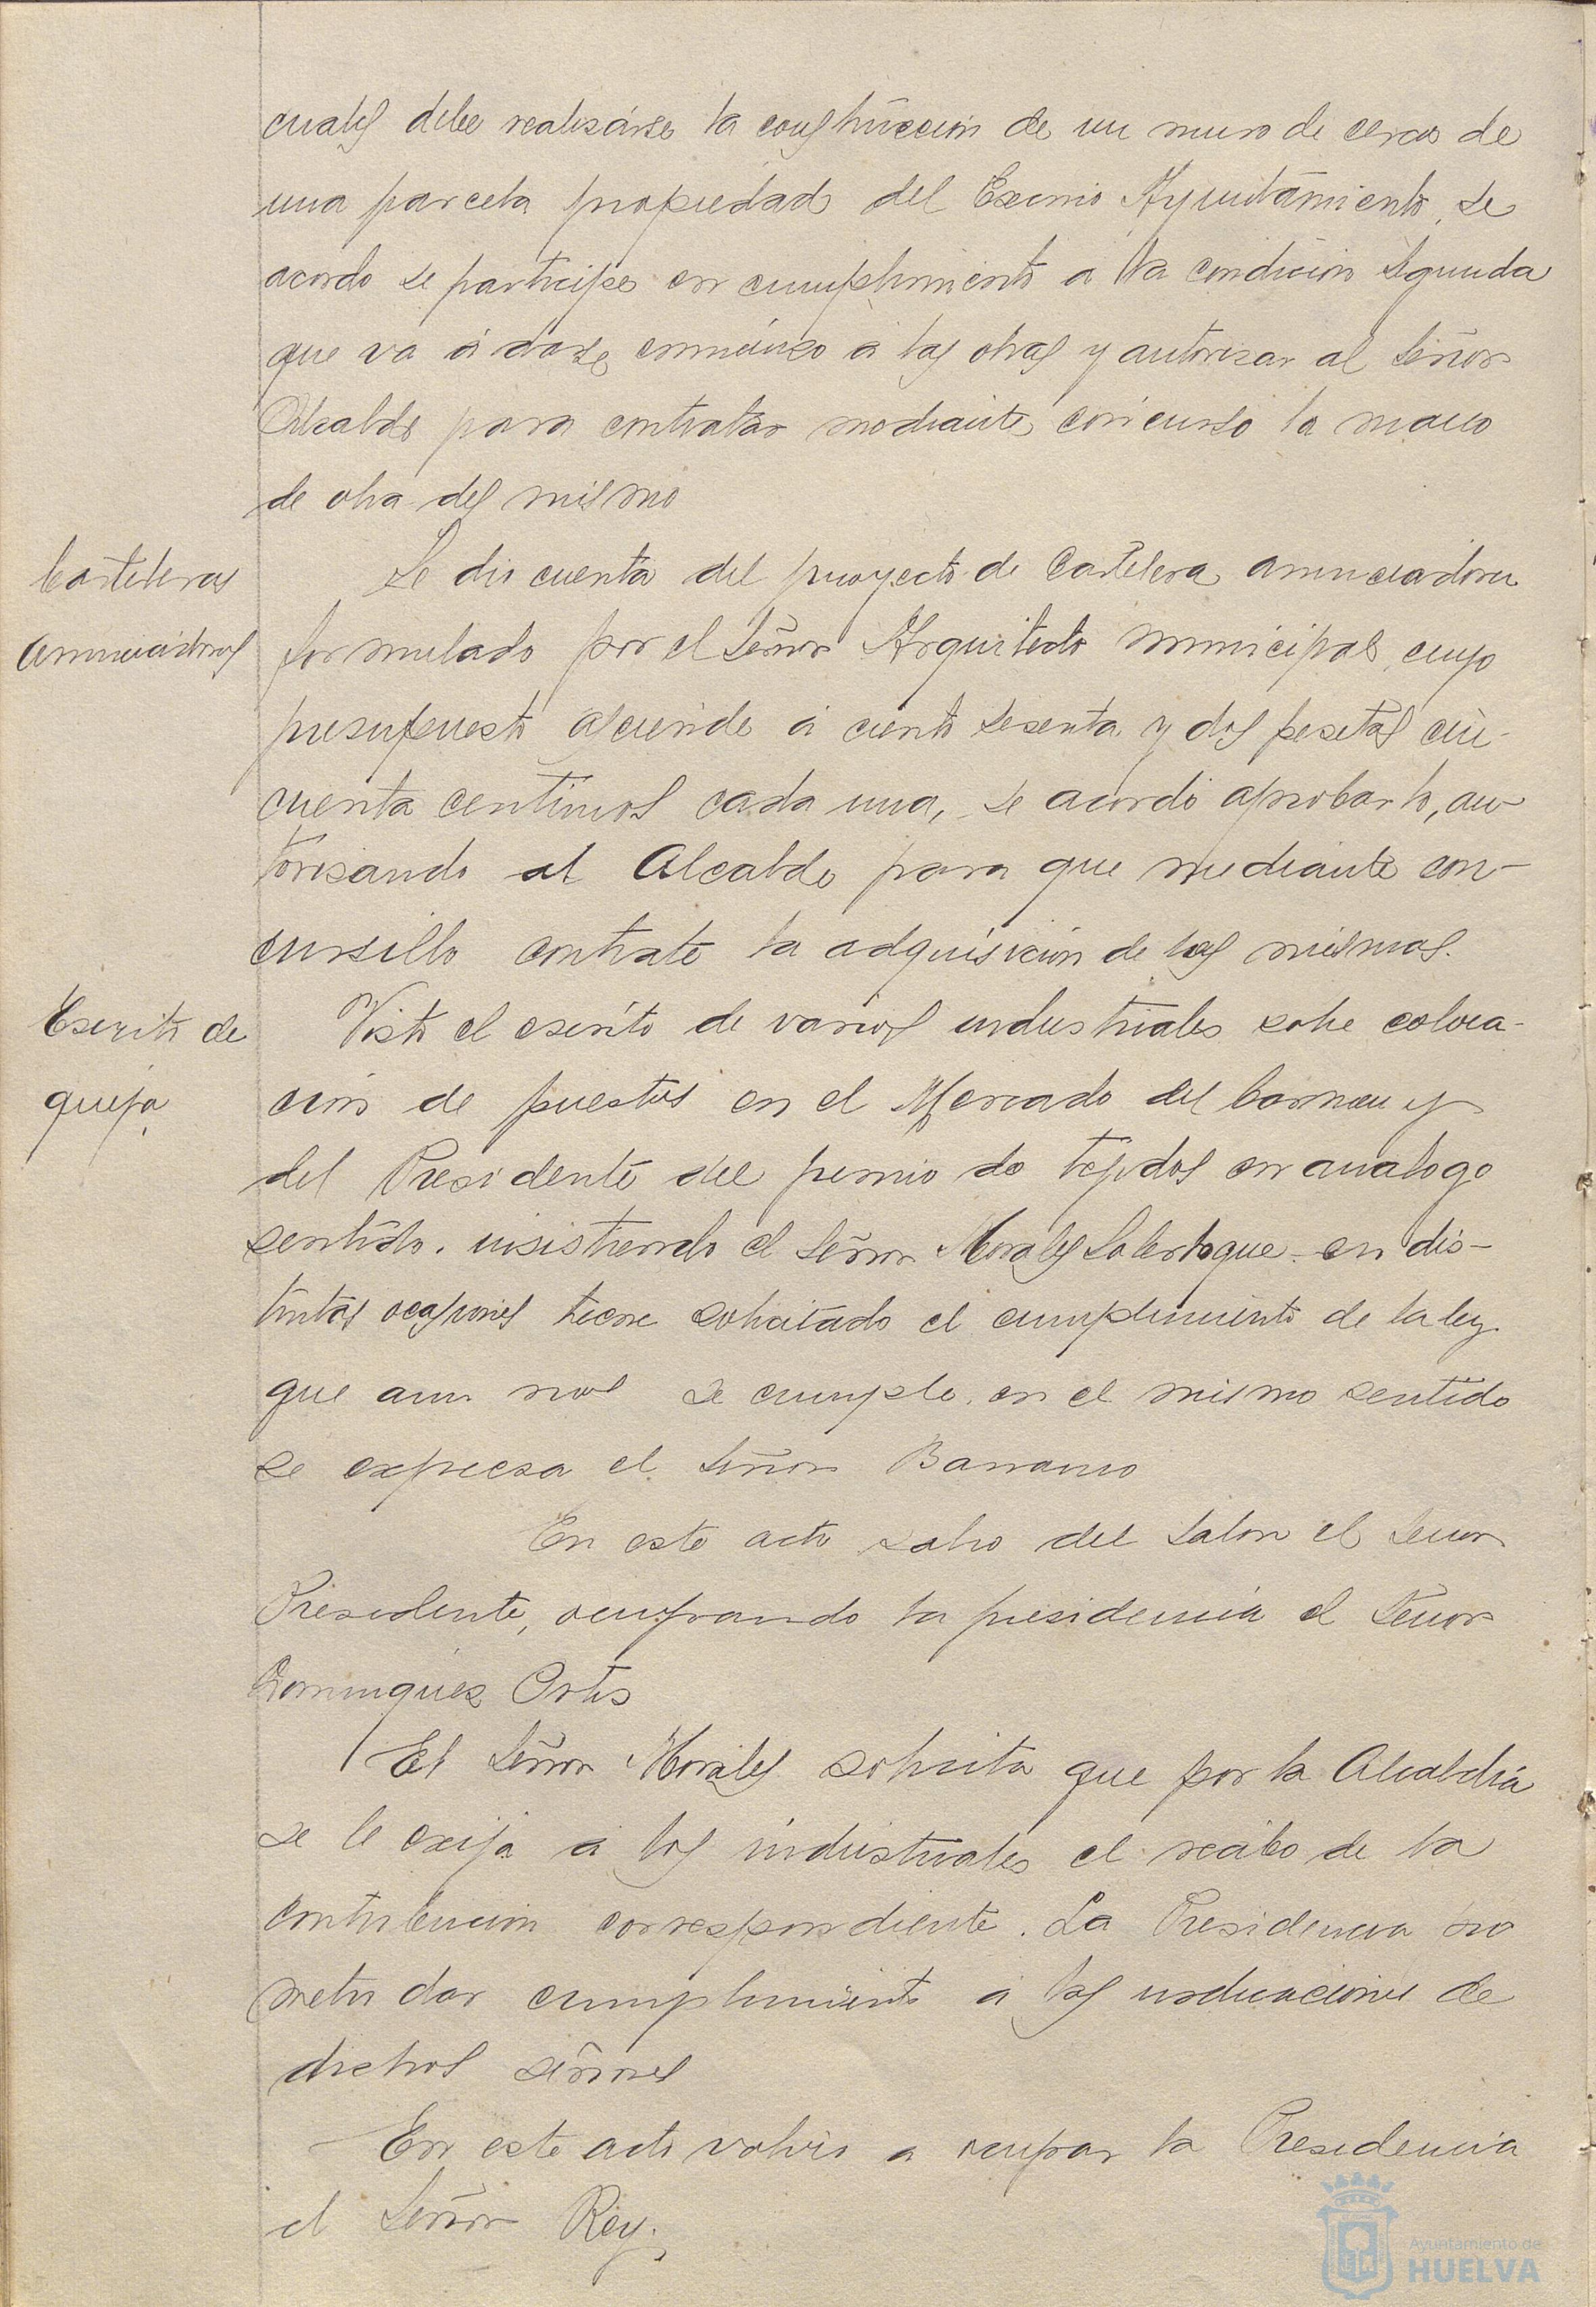 cuales debe realizarse la construccion de un muro de cerca de
una parcela propiedad del Excmo Ayuntamiento, se
acordo se participe en cumplimiento a la condicion segunda
que va á darse comienzo á las obras y autorizar al Señor
Alcalde para contratar mediante concurso la mano
de obra del mismo
Carteleras
anunciadoras
Se dió cuenta del proyecto de Cartelera anunciadora
formulado por el Señor Arquitecto municipal, cuyo
presupuesto asciende á ciento sesenta y dos pesetas cin-
cuenta centimos cada una, se acordó aprobarlo, au-
torizando al Alcalde para que mediante con-
cursillo contrate la adquisicion de las mismas.
Escrito de
queja
Visto el escrito de varios industriales sobre coloca-
cion de puestos en el Mercado del Carmen y
del Presidente del gremio de tejidos en analogo
sentido. insistiendo el Señor Morales que en dis-
tintas ocasiones tiene solicitado el cumplimiento de la ley
que aun no se cumple. en el mismo sentido
se expresa el Señor Barranco
En este acto salio del Salon el Señor
Presidente, ocupando la presidencia el Señor
Dominguez Ortiz
El Señor Morales solicita que por la Alcaldia
se le exija a los industriales el recibo de la
contribucion correspondiente. La Presidencia pro
metio dar cumplimiento a las indicaciones de
dichos señores
En este acto volvio a ocupar la Presidencia
el Señor Rey.
Ayuntamiento de
HUELVA